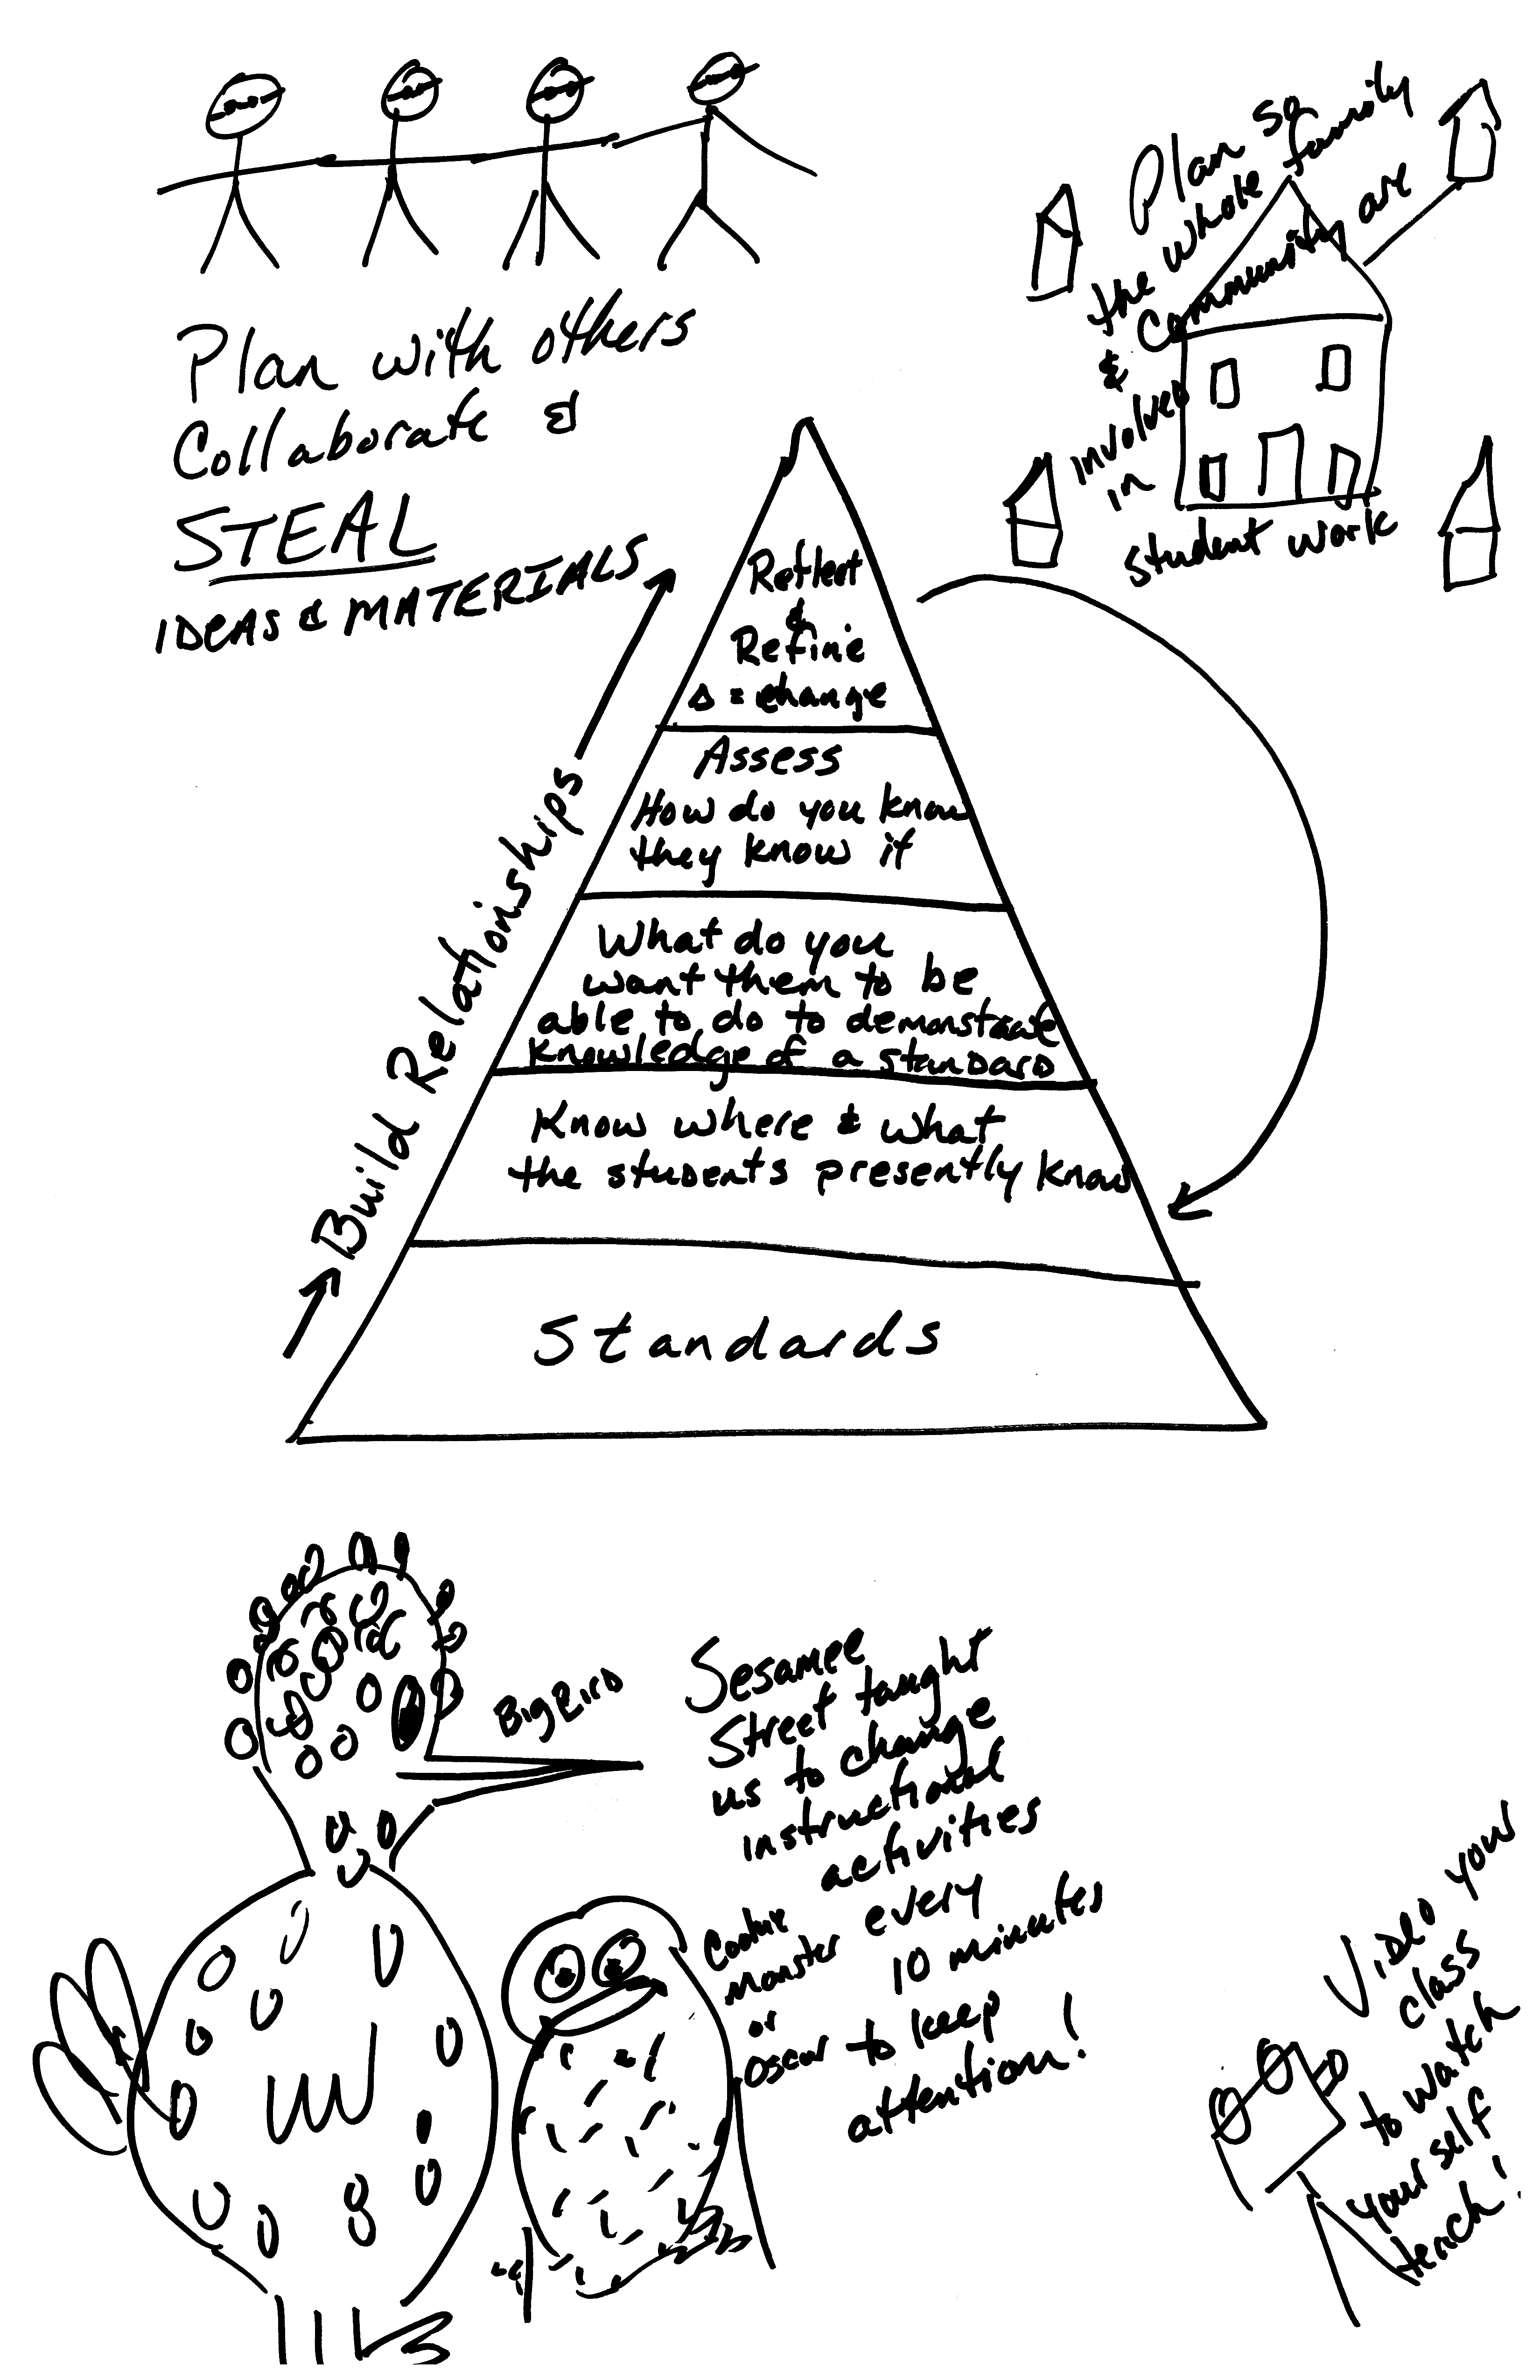 Plan with others
Collaborate &
STEAL
IDEAS & MATERIALS
Plan so
the whole family
& Community are
involved
in
student work
Build Relationships
Reflect
&
Refine
Δ = change
Assess
How do you know
they know it
What do you
want them to be
able to do to demonstrate
knowledge of a standard
Know where & what
the students presently know
Standards
Big Bird
Sesamee
Street taught
us to change
instructional
activities
every
10 minutes
to keep
attention!
Cookie
monster
or
oscar
Video your
class
to watch
yourself
teach!